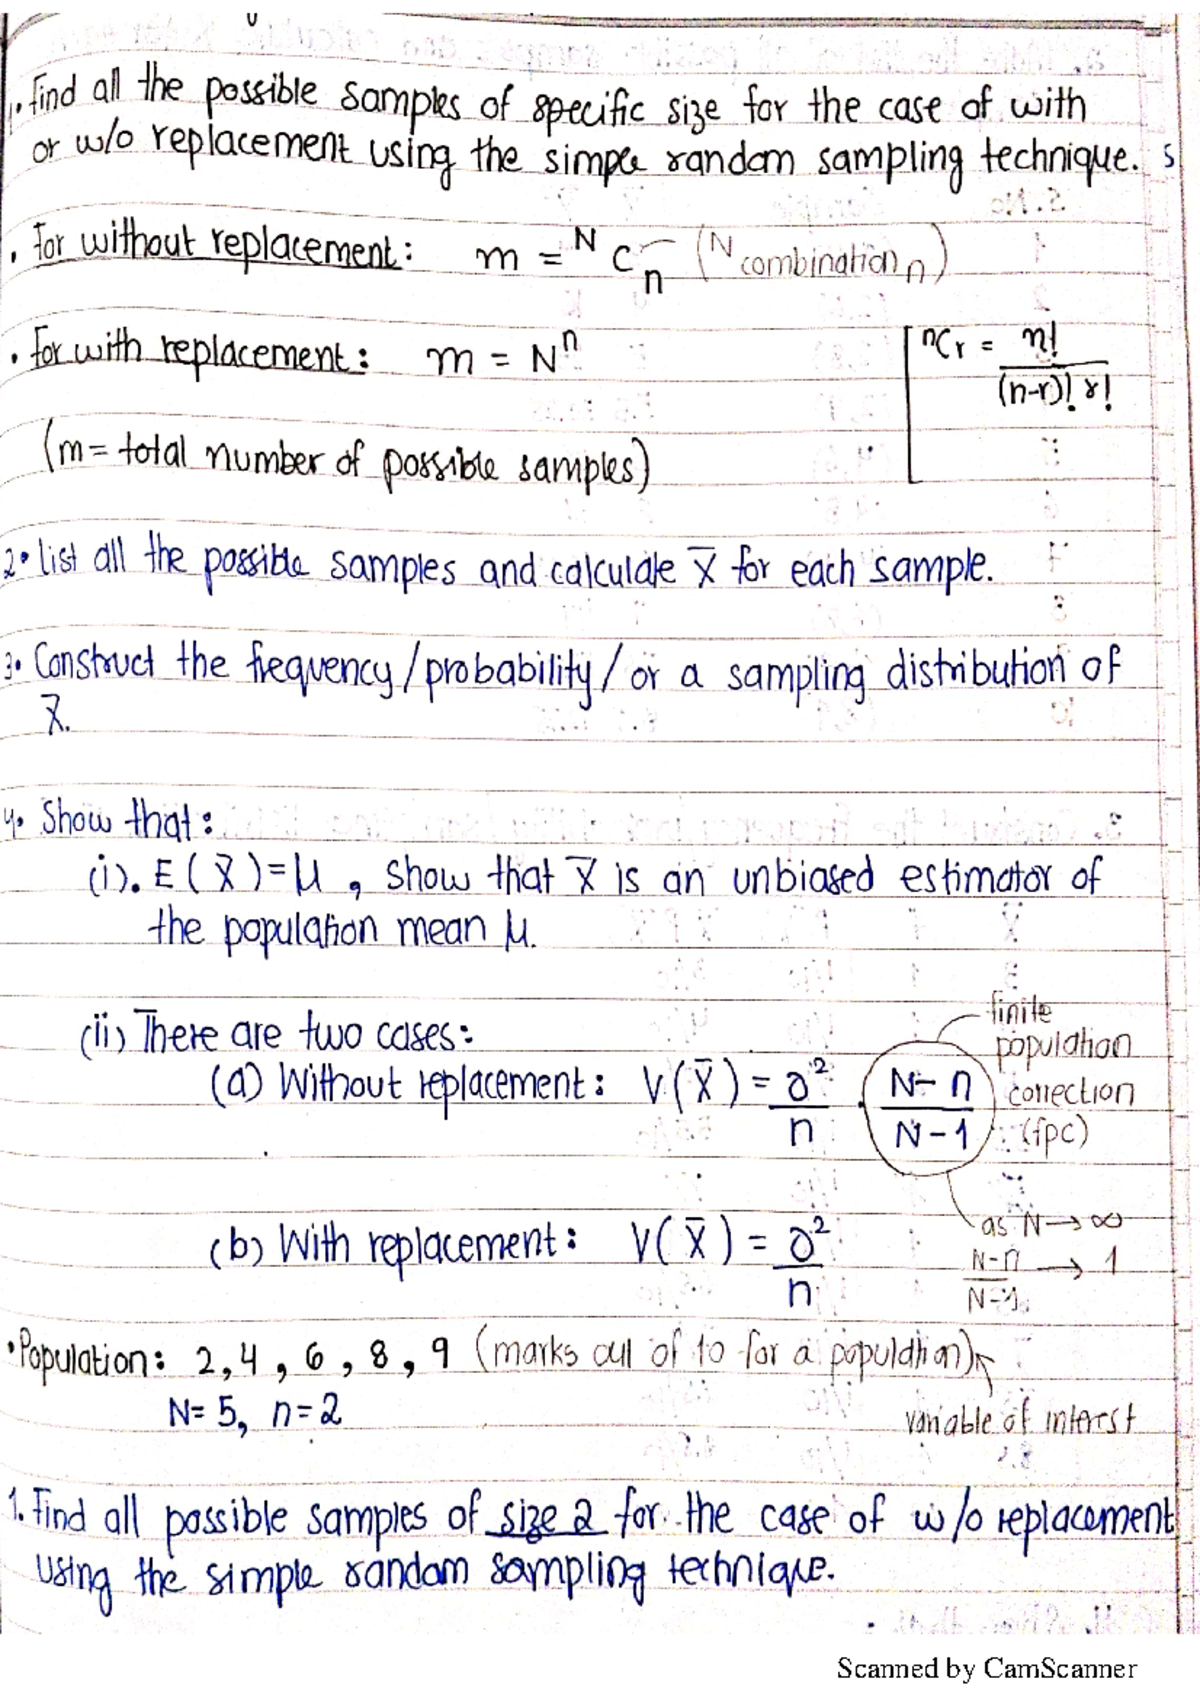 1. Find all the possible samples of specific size for the case of with
or w/o replacement using the simple random sampling technique. S
. For without replacement: m = ᴺCₙ (ᴺ combination ₙ)
. For with replacement: m = Nⁿ
ⁿCr = n! / (n-r)! r!
(m = total number of possible samples)
2. list all the possible samples and calculate X̄ for each sample.
3. Construct the frequency / probability / or a sampling distribution of
X̄.
4. Show that:
(i). E(X̄) = μ, show that X̄ is an unbiased estimator of
the population mean μ.
(ii) There are two cases:
(a) Without replacement: V(X̄) = σ²/n . N-n/N-1
finite
population
correction
(fpc)
as N → ∞
N-n/N-1 → 1
(b) With replacement: V(X̄) = σ²/n
• Population: 2, 4, 6, 8, 9 (marks out of 10 for a population)
N = 5, n = 2
variable of interest
1. Find all possible samples of size 2 for the case of w/o replacement
using the simple random sampling technique.
Scanned by CamScanner